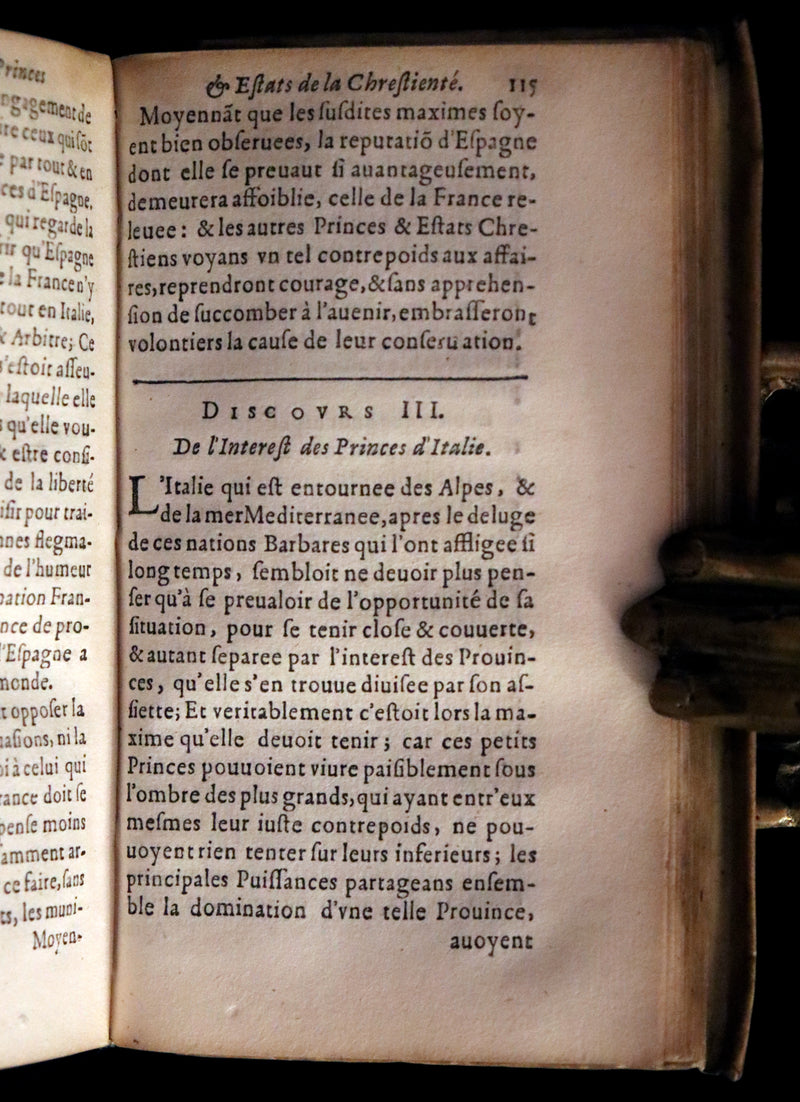 Princes
ngagement de
re ceux qui sōt
par tout & en
ces d'Eſpagne,
qui regarde la
rir qu'Eſpagne
e la France n'y
tout en Italie,
& Arbitre; Ce
'eſtoit aſſeu-
laquelle elle
s qu'elle vou-
& eſtre conſi-
de la liberté
iſir pour trai-
nnes flegma-
de l'humeur
nation Fran-
nce de pro-
d'Eſpagne a
monde.
t oppoſer la
naſions, ni la
oi à celui qui
rance doit ſe
penſe moins
amment ar-
ce faire, ſans
ts, les muni-
Moyen-
& Eſtats de la Chreſtienté. 115
Moyennãt que les ſuſdites maximes ſoy-
ent bien obſeruees, la reputatiõ d'Eſpagne
dont elle ſe preuaut ſi auantageuſement,
demeurera affoiblie, celle de la France re-
leuee: & les autres Princes & Eſtats Chre-
ſtiens voyans vn tel contrepoids aux affai-
res, reprendront courage, & ſans apprehen-
ſion de ſuccomber à l'auenir, embraſſeront
volontiers la cauſe de leur conſeruation.
DISCOVRS III.
De l'Intereſt des Princes d'Italie.
L'Italie qui eſt entournee des Alpes, &
de la mer Mediterranee, apres le deluge
de ces nations Barbares qui l'ont affligee ſi
long temps, ſembloit ne deuoir plus pen-
ſer qu'à ſe preualoir de l'opportunité de ſa
ſituation, pour ſe tenir cloſe & couuerte,
& autant ſeparee par l'intereſt des Prouin-
ces, qu'elle s'en trouue diuiſee par ſon aſ-
ſiette; Et veritablement c'eſtoit lors la ma-
xime qu'elle deuoit tenir; car ces petits
Princes pouuoient viure paiſiblement ſous
l'ombre des plus grands, qui ayant entr'eux
meſmes leur iuſte contrepoids, ne pou-
uoyent rien tenter ſur leurs inferieurs; les
principales Puiſſances partageans enſem-
ble la domination d'vne telle Prouince,
auoyent